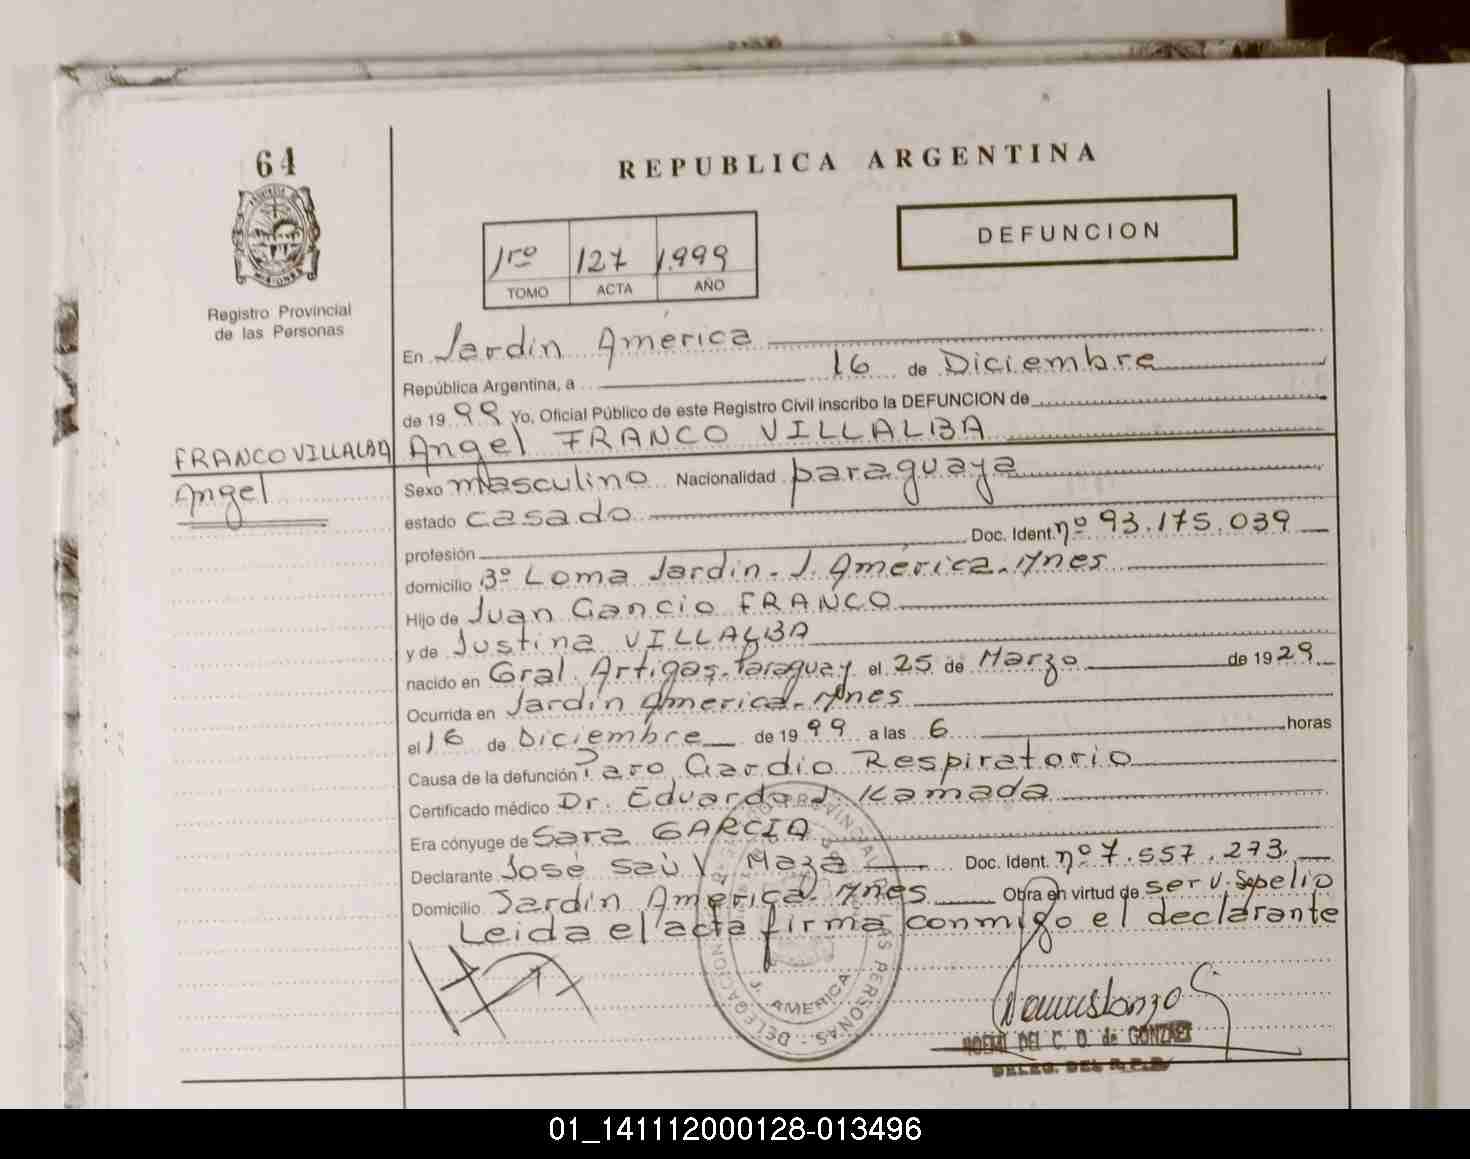 64
REPUBLICA ARGENTINA
DEFUNCION
1ro 127 1.999
TOMO ACTA AÑO
Registro Provincial
de las Personas
En Jardin América
República Argentina, a 16 de Diciembre
de 19 99 Yo, Oficial Público de este Registro Civil inscribo la DEFUNCION de
FRANCO VILLALBA
Angel
Angel FRANCO VILLALBA
Sexo masculino Nacionalidad paraguaya
estado casado
profesión Doc. Ident. nº 93.175.039
domicilio 3º Loma Jardin. J. América. Mnes
Hijo de Juan Cancio FRANCO
y de Justina VILLALBA
nacido en Gral. Artigas. Paraguay el 25 de Marzo de 19 29
Ocurrida en Jardin América. Mnes
el 16 de Diciembre de 19 99 a las 6 horas
Causa de la defunción Paro Cardio Respiratorio
Certificado médico Dr. Eduardo J. Kamada
Era cónyuge de Sara GARCIA
Declarante José Saúl Maza Doc. Ident. nº 7.557.273.
Domicilio Jardin América. Mnes Obra en virtud de serv. Sepelio
Leida el acta firma conmigo el declarante
DELEGACION J. AMERICA
PROVINCIAL DE LAS PERSONAS
NOEMI DEL C. D. de GONZALEZ
DELEG. DEL R.P.P.
01_141112000128-013496